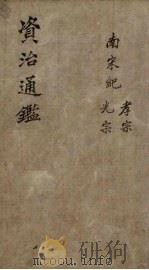 南宋紀 孝宗
光宗
資治通鑑